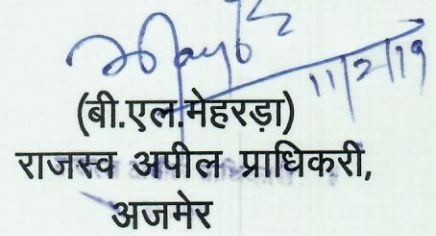 11/2/19
(बी.एल.मेहरड़ा)
राजस्व अपील प्राधिकरी,
अजमेर